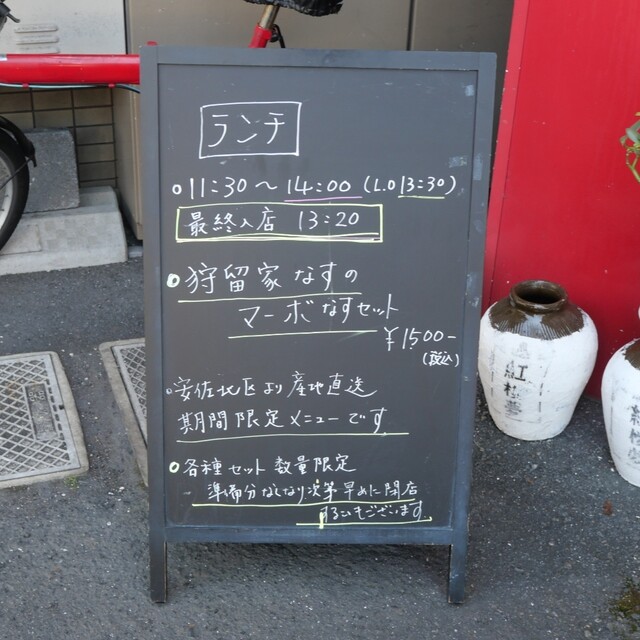 ランチ
11:30～14:00(L.O 13:30)
最終入店 13:20
狩留家なすの
マーボなすセット
¥1500-
(税込)
安佐北区より産地直送
期間限定メニューです
各種セット数量限定
準備分なくなり次第早めに閉店
することもございます
紅